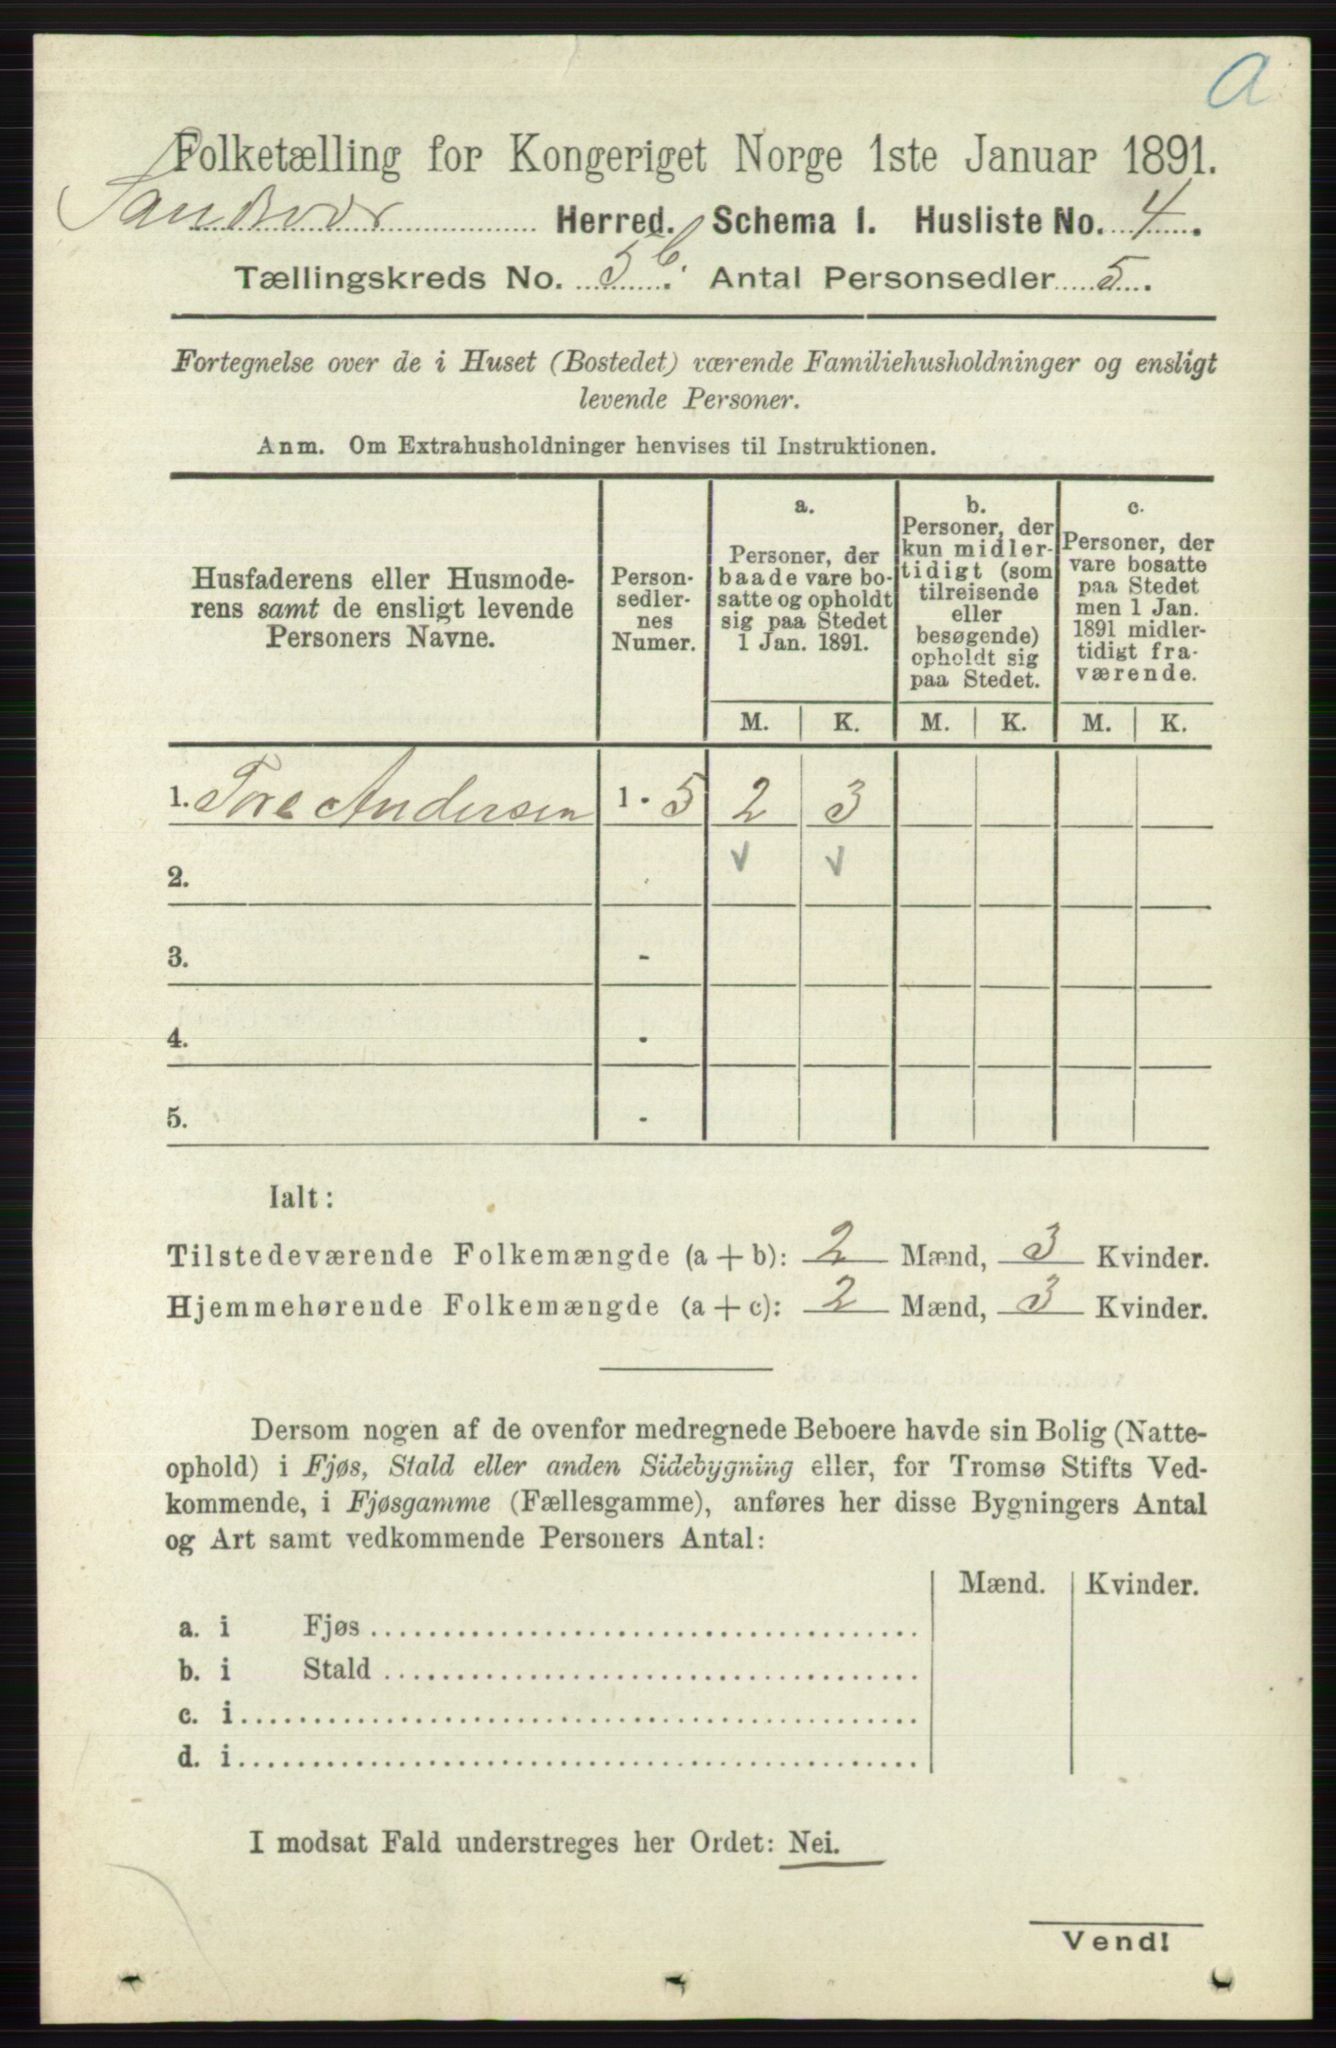 a
Folketælling for Kongeriget Norge 1ste Januar 1891.
Sandsvær Herred. Schema 1. Husliste No. 4.
Tællingskreds No. 5 C. Antal Personsedler 5.
Fortegnelse over de i Huset (Bostedet) værende Familiehusholdninger og ensligt
levende Personer.
Anm. Om Extrahusholdninger henvises til Instruktionen.
Husfaderens eller Husmode-
rens samt de ensligt levende
Personers Navne.
Person-
sedler-
nes
Numer.
a.
Personer, der
baade vare bo-
satte og opholdt
sig paa Stedet
1 Jan. 1891.
b.
Personer, der
kun midler-
tidigt (som
tilreisende
eller
besøgende)
opholdt sig
paa Stedet.
c.
Personer, der
vare bosatte
paa Stedet
men 1 Jan.
1891 midler-
tidigt fra-
værende.
M. K. M. K. M. K.
1. Tore Andersen 1 - 5 2 3
2.
3. -
4. -
5. -
Ialt:
Tilstedeværende Folkemængde (a + b): 2 Mænd, 3 Kvinder.
Hjemmehørende Folkemængde (a + c): 2 Mænd, 3 Kvinder.
Dersom nogen af de ovenfor medregnede Beboere havde sin Bolig (Natte-
ophold) i Fjøs, Stald eller anden Sidebygning eller, for Tromsø Stifts Ved-
kommende, i Fjøsgamme (Fællesgamme), anføres her disse Bygningers Antal
og Art samt vedkommende Personers Antal:
Mænd. Kvinder.
a. i Fjøs
b. i Stald
c. i
d. i
I modsat Fald understreges her Ordet: Nei.
Vend!